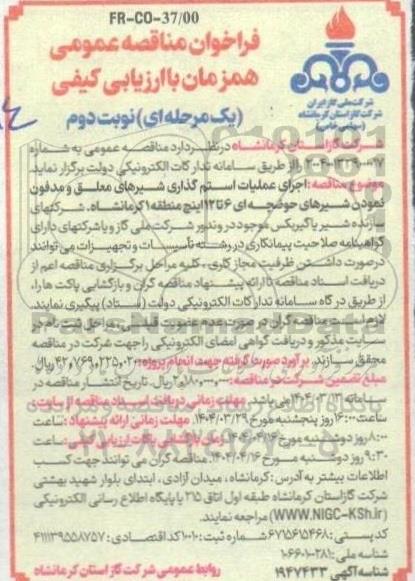 FR-CO-37/00
فراخوان مناقصه عمومی
همزمان با ارزیابی کیفی
(یک مرحله ای) نوبت دوم
شرکت ملی گاز ایران
شرکت گاز استان کرمانشاه
(سهامی خاص)
شرکت گاز استان کرمانشاه در نظر دارد مناقصه عمومی به شماره
را از طریق سامانه تدارکات الکترونیکی دولت برگزار نماید
موضوع مناقصه: اجرای عملیات استم گذاری شیرهای معلق و مدفون
نمودن شیرهای حوضچه ای ۶ تا ۱۲ اینچ منطقه ۱ کرمانشاه. شرکتهای
سازنده شیر یا گیربکس موجود در وندور شرکت ملی گاز و یا شرکتهای دارای
گواهینامه صلاحیت پیمانکاری در رشته تأسیسات و تجهیزات می توانند
در صورت داشتن ظرفیت مجاز کاری، کلیه مراحل برگزاری مناقصه اعم از
دریافت اسناد مناقصه تا ارائه پیشنهاد مناقصه گران و بازگشایی پاکت ها را،
از طریق درگاه سامانه تدارکات الکترونیکی دولت (ستاد) پیگیری نمایند.
لازم است مناقصه گران در صورت عدم عضویت قبلی، مراحل ثبت نام در
سایت مذکور و دریافت گواهی امضای الکترونیکی را جهت شرکت در مناقصه
محقق سازند. برآورد صورت گرفته جهت انجام پروژه: ۴۲,۷۶۹,۲۲۵,۰۲۰ ریال.
مبلغ تضمین شرکت در مناقصه: ریال. تاریخ انتشار مناقصه در
سامانه می باشد. مهلت زمانی دریافت اسناد مناقصه از سایت:
ساعت ۱۶:۰۰ روز پنجشنبه مورخ ۱۴۰۴/۰۳/۲۹. مهلت زمانی ارائه پیشنهاد: ساعت
۸:۰۰ روز دوشنبه مورخ زمان بازگشایی پاکات ارزیابی کیفی: ساعت
۹:۳۰ روز دوشنبه مورخ ۱۴۰۴/۰۴/۱۶. مناقصه گران می توانند جهت کسب
اطلاعات بیشتر به آدرس: کرمانشاه، میدان آزادی، ابتدای بلوار شهید بهشتی
شرکت گاز استان کرمانشاه طبقه اول اتاق ۲۱۵ یا پایگاه اطلاع رسانی الکترونیکی
(WWW.NIGC-KSh.ir) مراجعه نمایند.
کد پستی: ۶۷۱۵۶۱۵۴۶۸ شماره ثبت: ۱۰۰۱۰ کد اقتصادی: ۴۱۱۱۳۹۵۵۸۷۵۷
شناسه ملی: ۱۰۶۶۰۱۰۲۸۱۰
شناسه آگهی ۱۹۴۷۴۳۳
روابط عمومی شرکت گاز استان کرمانشاه